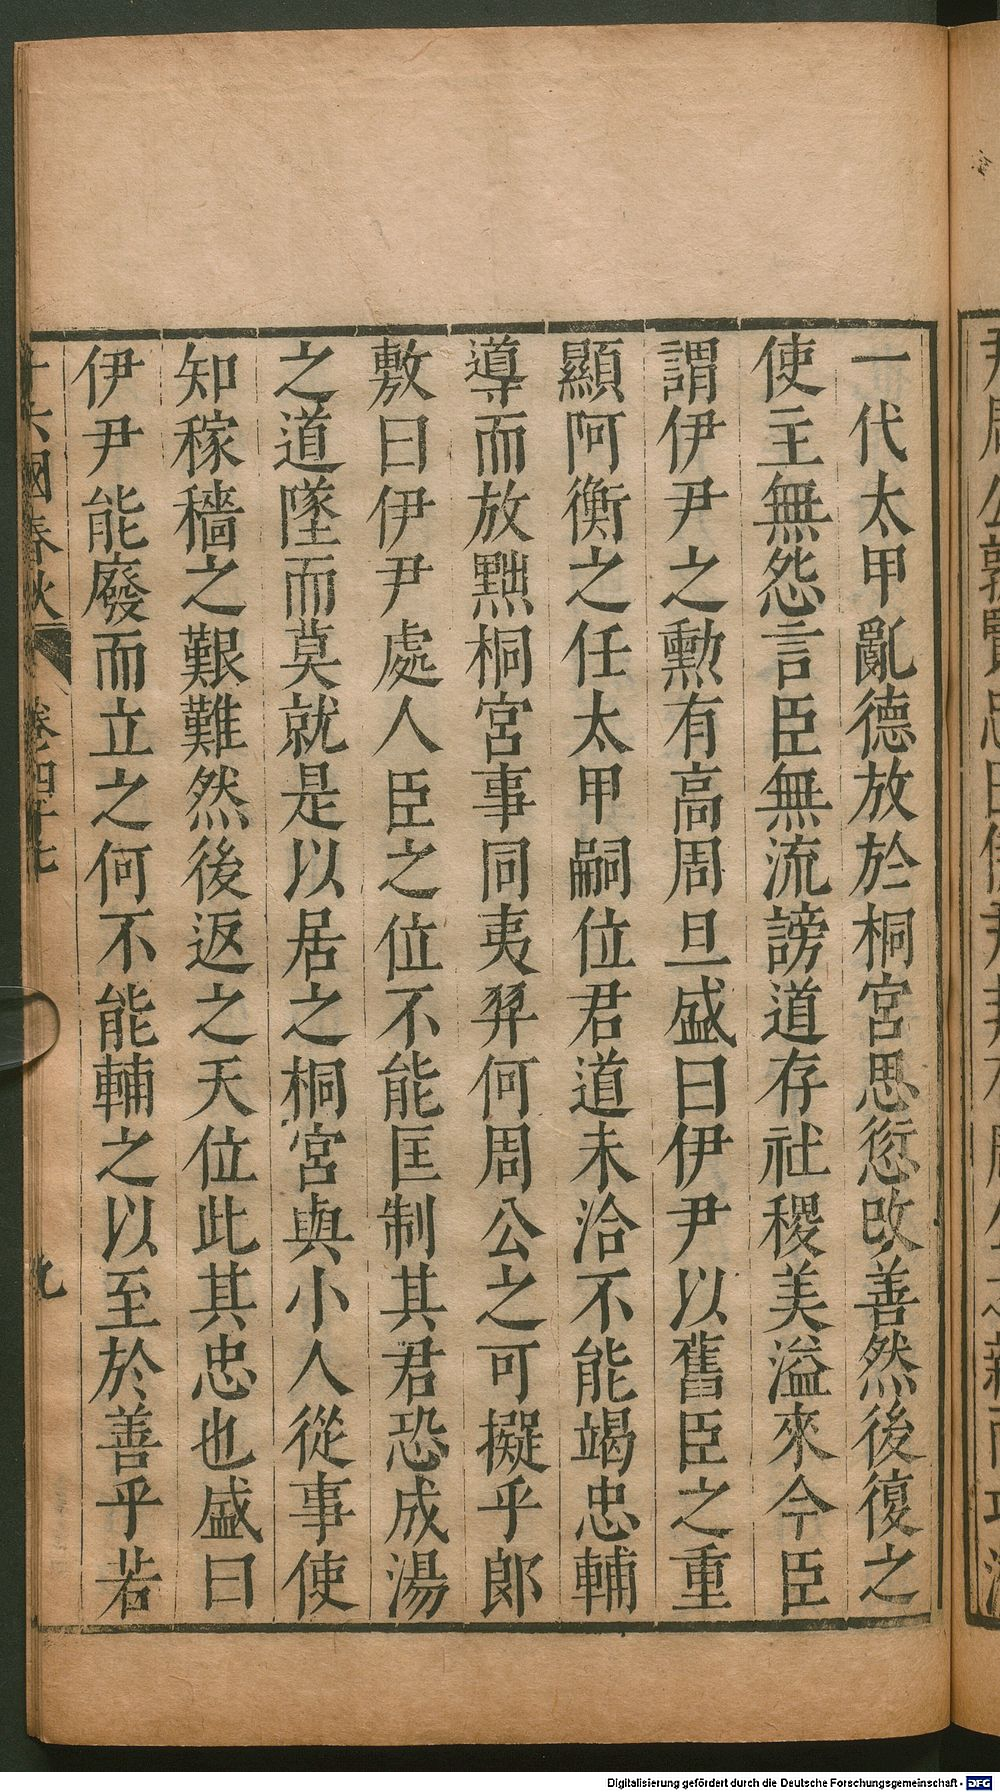 一代太甲亂德放於桐宮思愆改善然後復之
使主無怨言臣無流謗道存社稷美溢來今臣
謂伊尹之勳有高周旦盛曰伊尹以舊臣之重
顯阿衡之任太甲嗣位君道未洽不能竭忠輔
導而放黜桐宮事同夷羿何周公之可擬乎郎
敷曰伊尹處人臣之位不能匡制其君恐成湯
之道墜而莫就是以居之桐宮與小人從事使
知稼穡之艱難然後返之天位此其忠也盛曰
伊尹能廢而立之何不能輔之以至於善乎若
十六國春秋 卷四十七 九
Digitalisierung gefördert durch die Deutsche Forschungsgemeinschaft - DFG